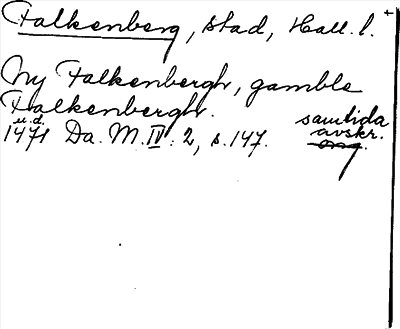 Falkenberg, stad, Hall. l.
Ny Falkenbergh, gamble
Falkenbergh.
u.d.
1471 Da. M. IV: 2, s. 147.
samtida
avskr.
orig.